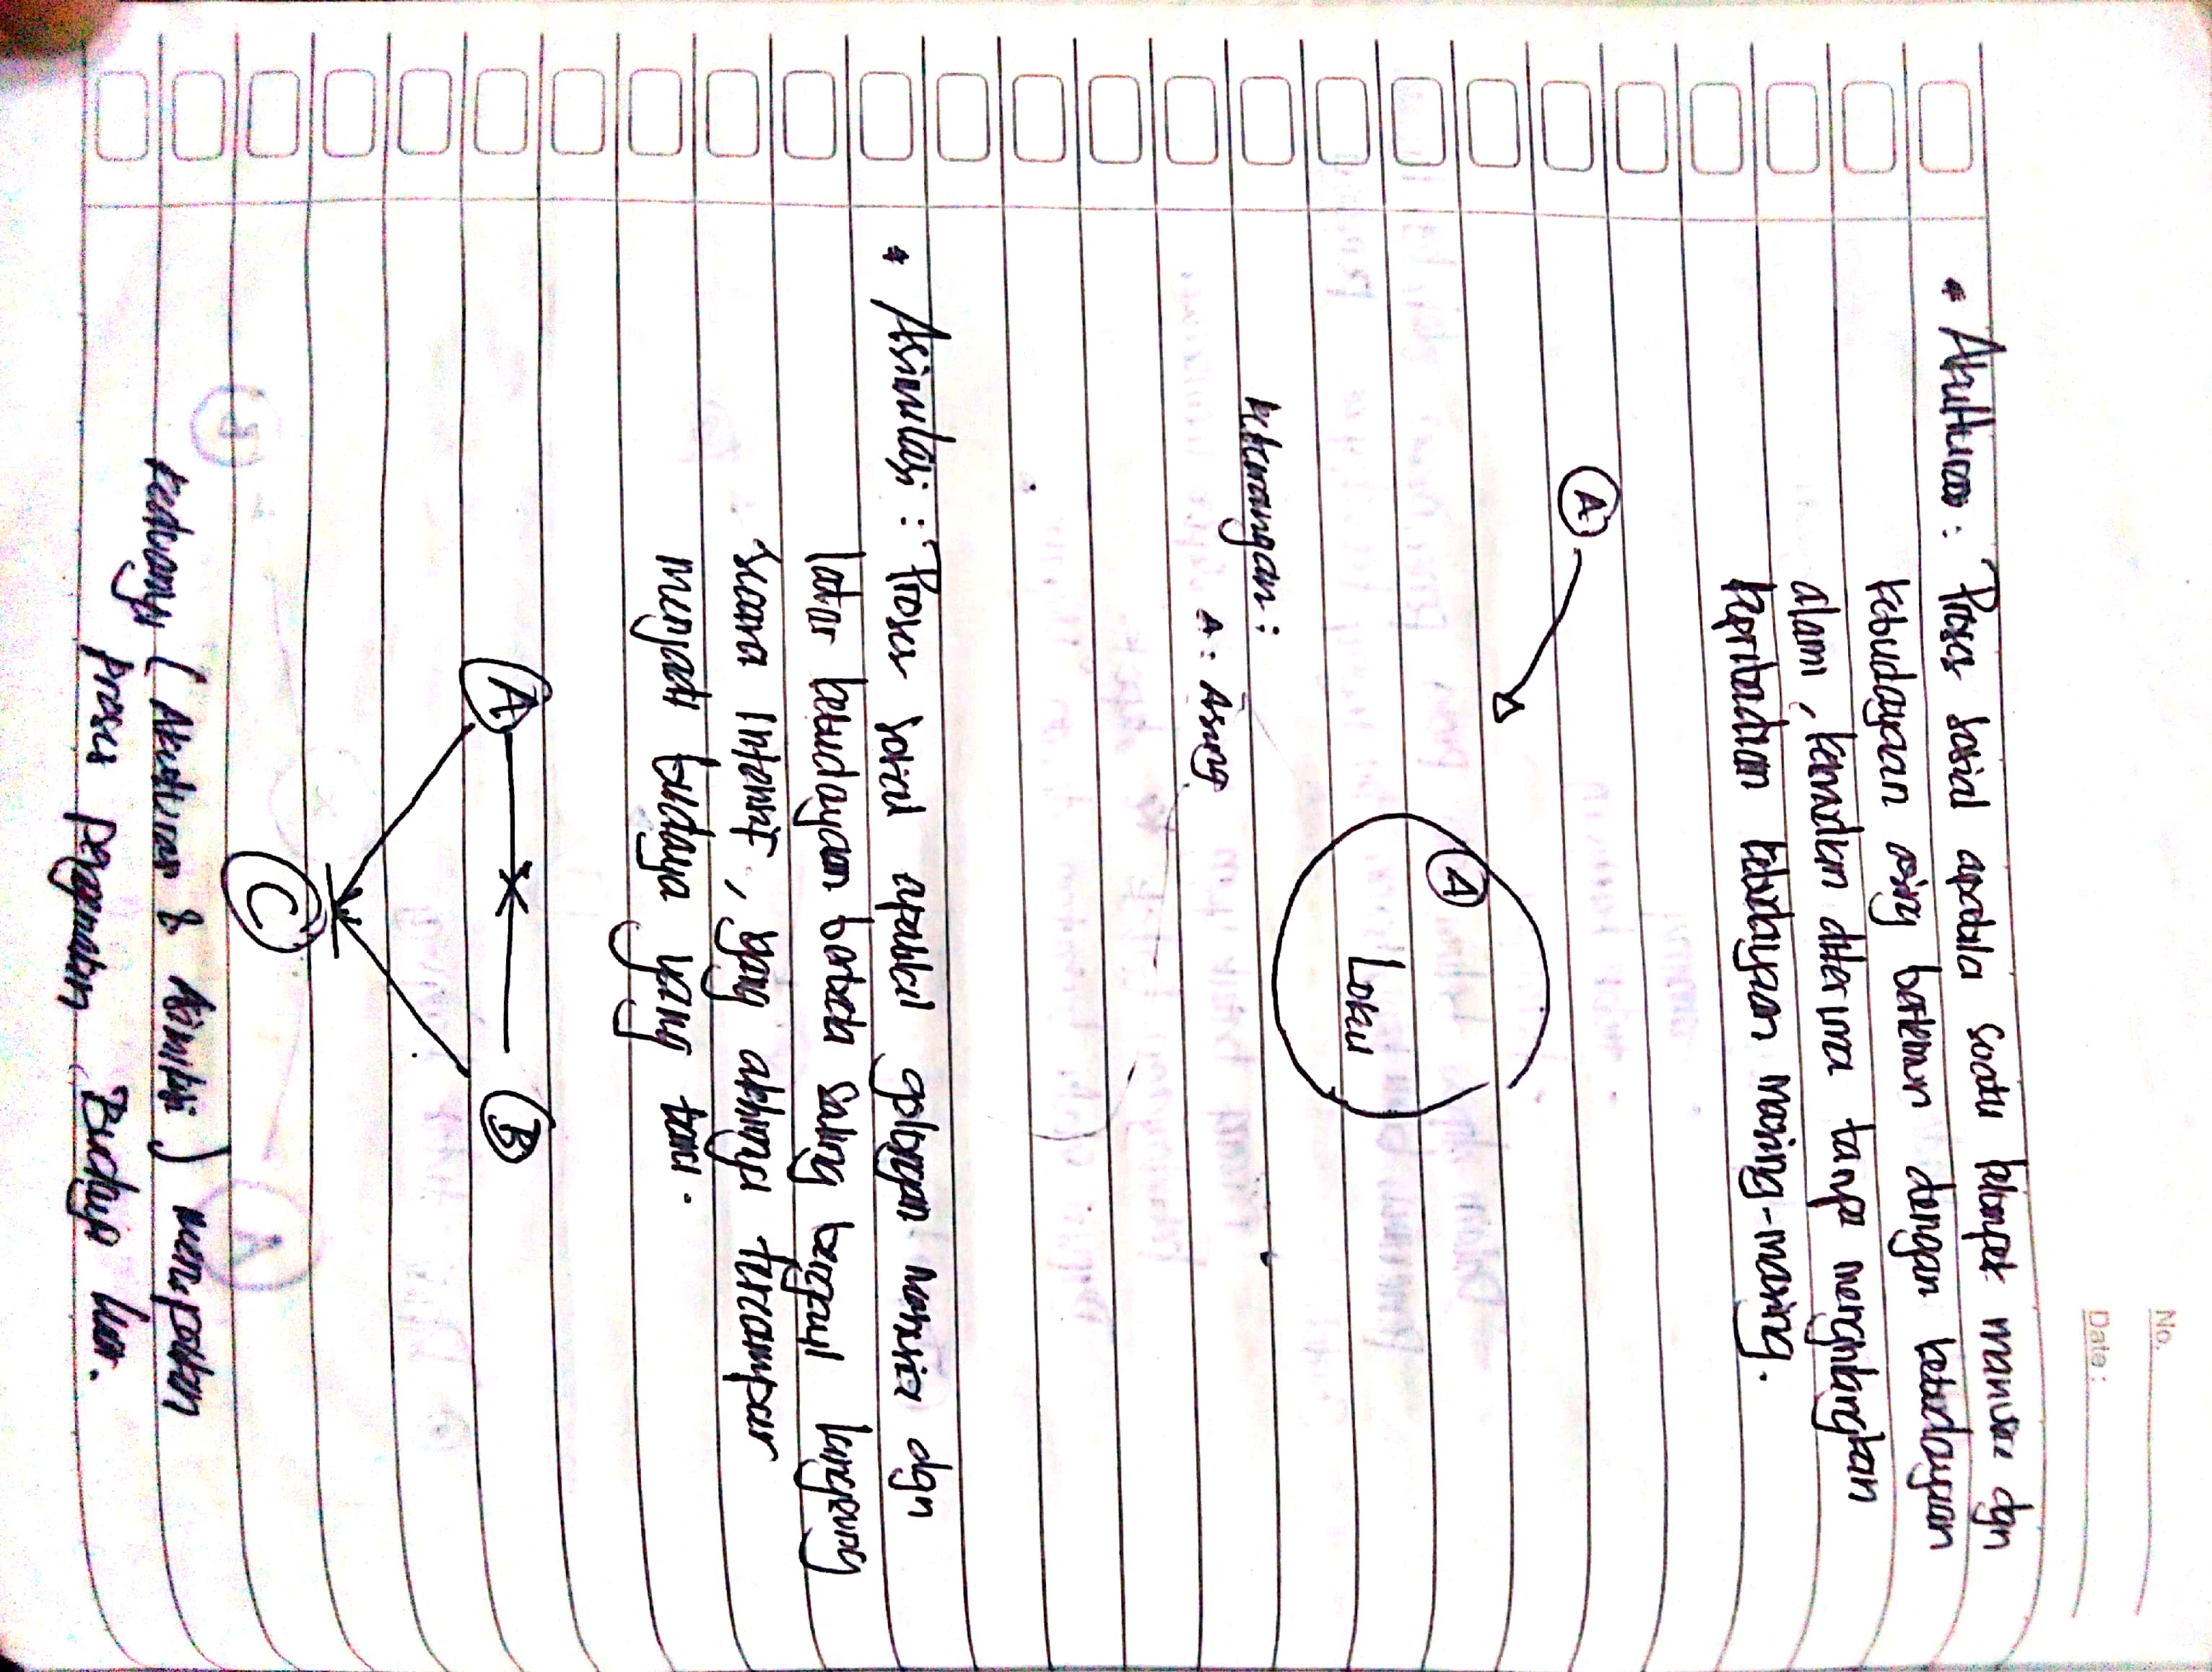 No.
Date :
* Akulturasi : Proses sosial apabila suatu kelompok manusia dgn
kebudayaan asing bertemu dengan kebudayaan
alami, kemudian diterima tanpa menghilangkan
kepribadian kebudayaan masing-masing.
A
A
Lokal
Keterangan :
A : Asing
* Asimilasi : Proses sosial apabila golongan manusia dgn
latar kebudayaan berbeda saling bergaul langsung
secara intensif, yang akhirnya tercampur
menjadi budaya yang baru.
A B
C
Keduanya (Akulturasi & Asimilasi) merupakan
proses Budaya luar.